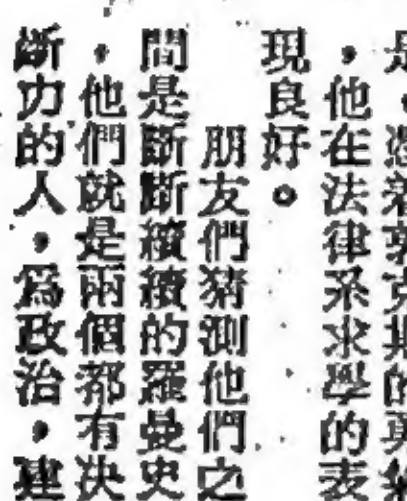 是，憑着郭克斯的
，他在法律系求學的表
現良好。
朋友們猜測他們之
間是斷斷續續的羅曼史
，他們就是兩個都有决
斷力的人，爲政治，建